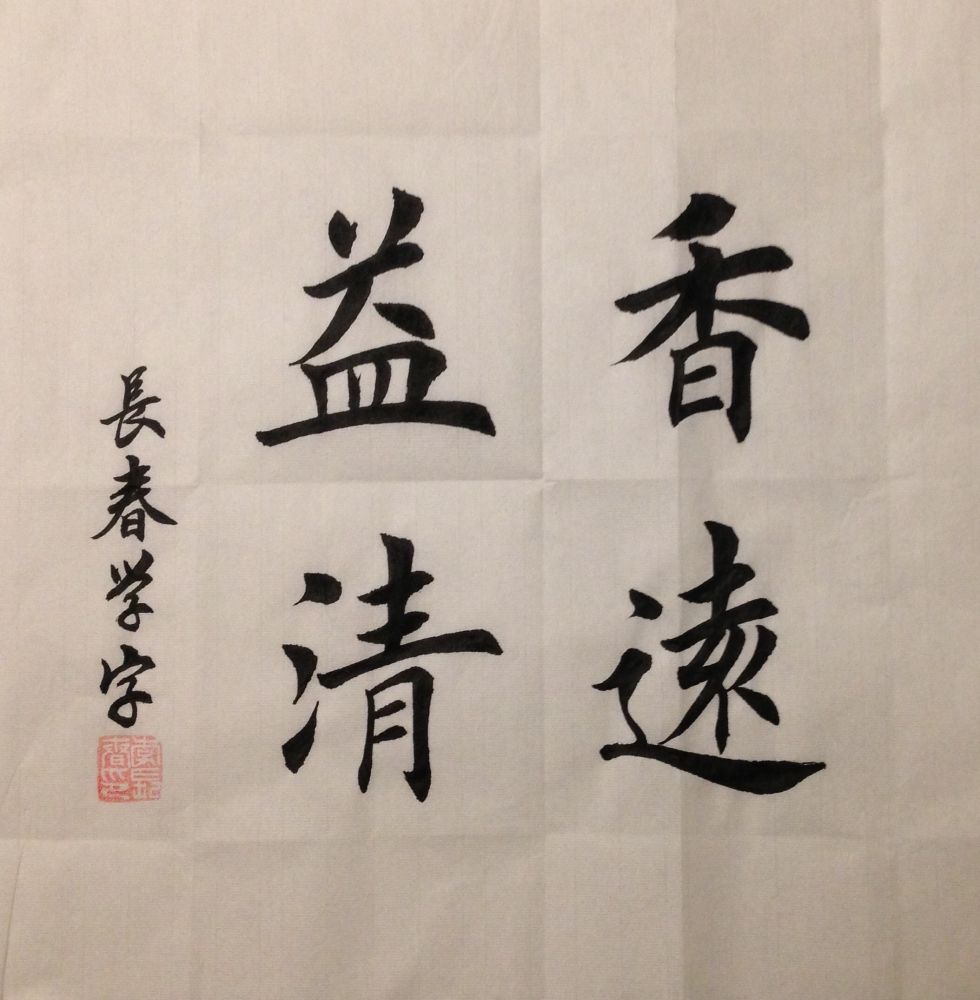 香遠
益清
長春学字